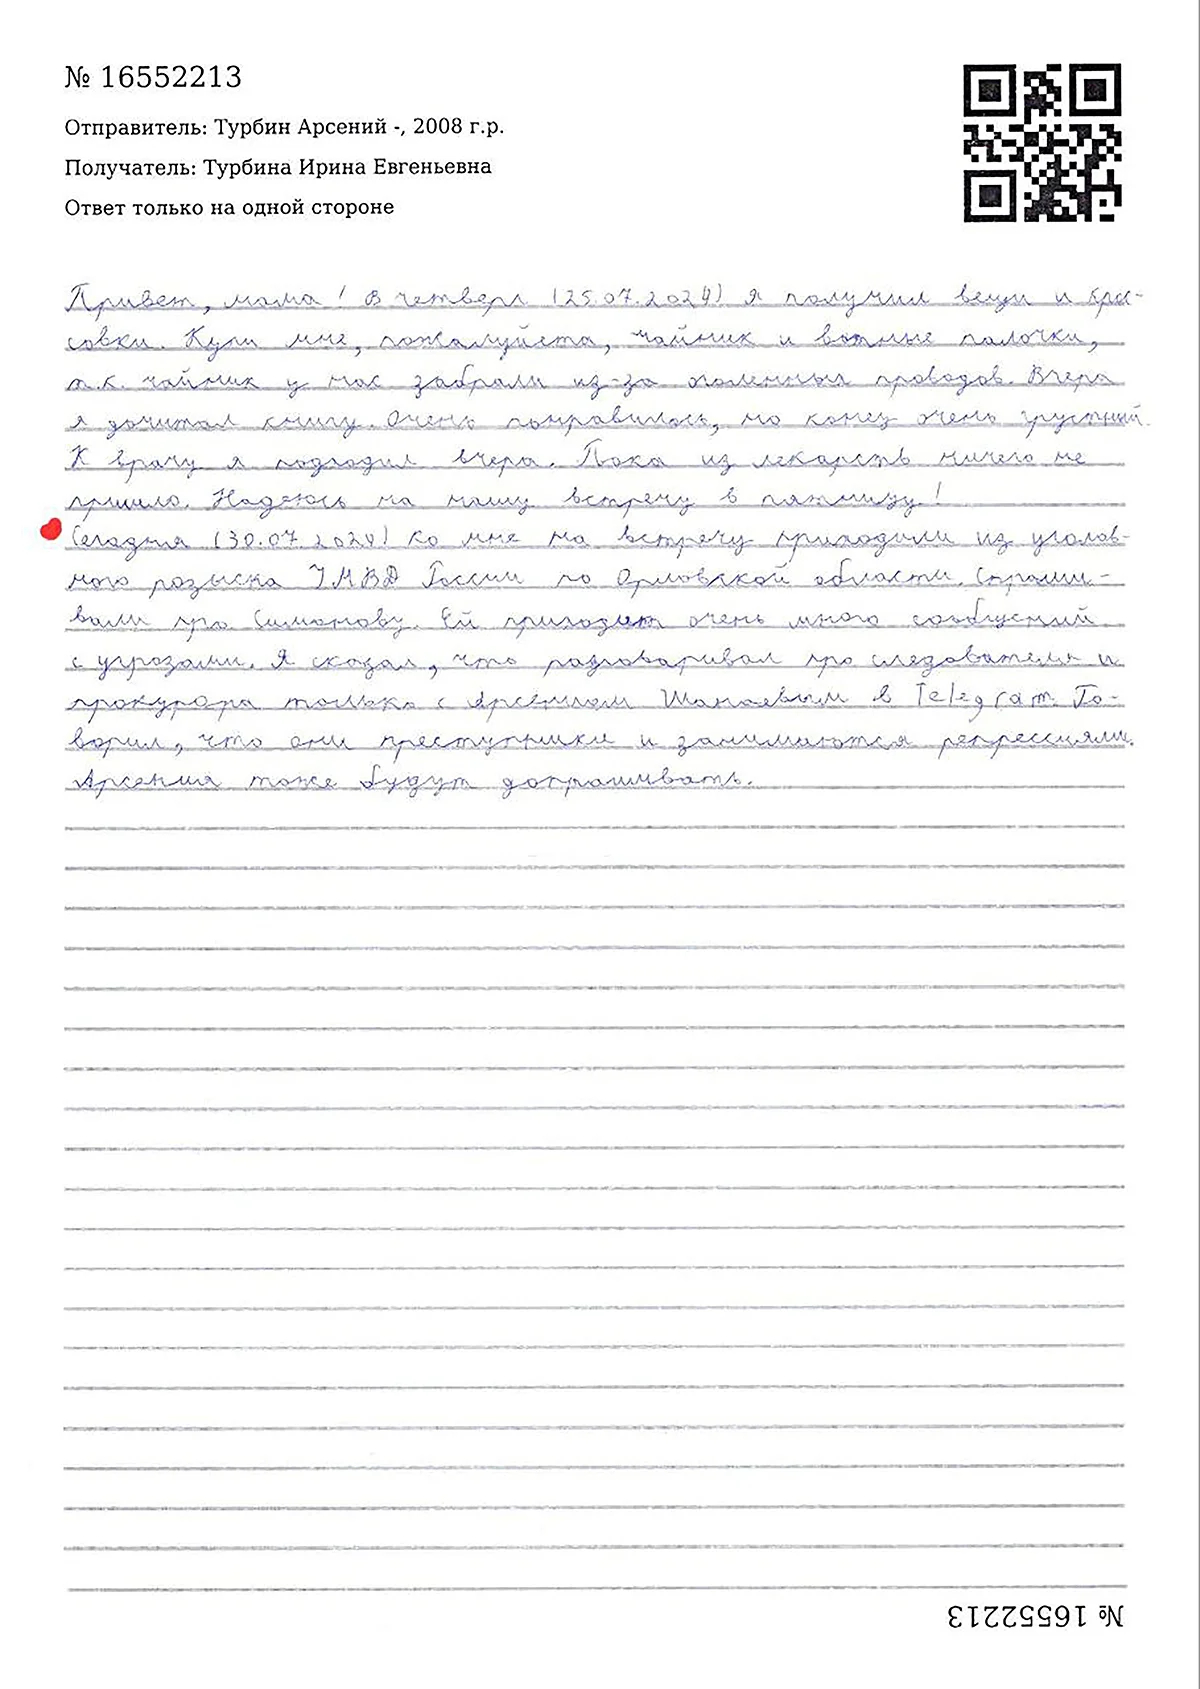 № 16552213
Отправитель: Турбин Арсений -, 2008 г.р.
Получатель: Турбина Ирина Евгеньевна
Ответ только на одной стороне
Привет, мама! В четверг (25.07.2024) я получил вещи и крос-
совки. Купи мне, пожалуйста, чайник и ватные палочки,
т.к. чайник у нас забрали из-за оголенных проводов. Вчера
я дочитал книгу. Очень понравилось, но конец очень грустный.
К врачу я подходил вчера. Пока из лекарств ничего не
пришло. Надеюсь на нашу встречу в пятницу!
Сегодня (30.07.2024) ко мне на встречу приходили из уголов-
ного розыска УМВД России по Орловской области. Спраши-
вали про Симонову. Ей приходит очень много сообщений
с угрозами. Я сказал, что разговаривал про следователя и
прокурора только с Арсением Шанаевым в Telegram. Го-
ворил, что они преступники и занимаются репрессиями.
Арсения тоже будут допрашивать.
№ 16552213